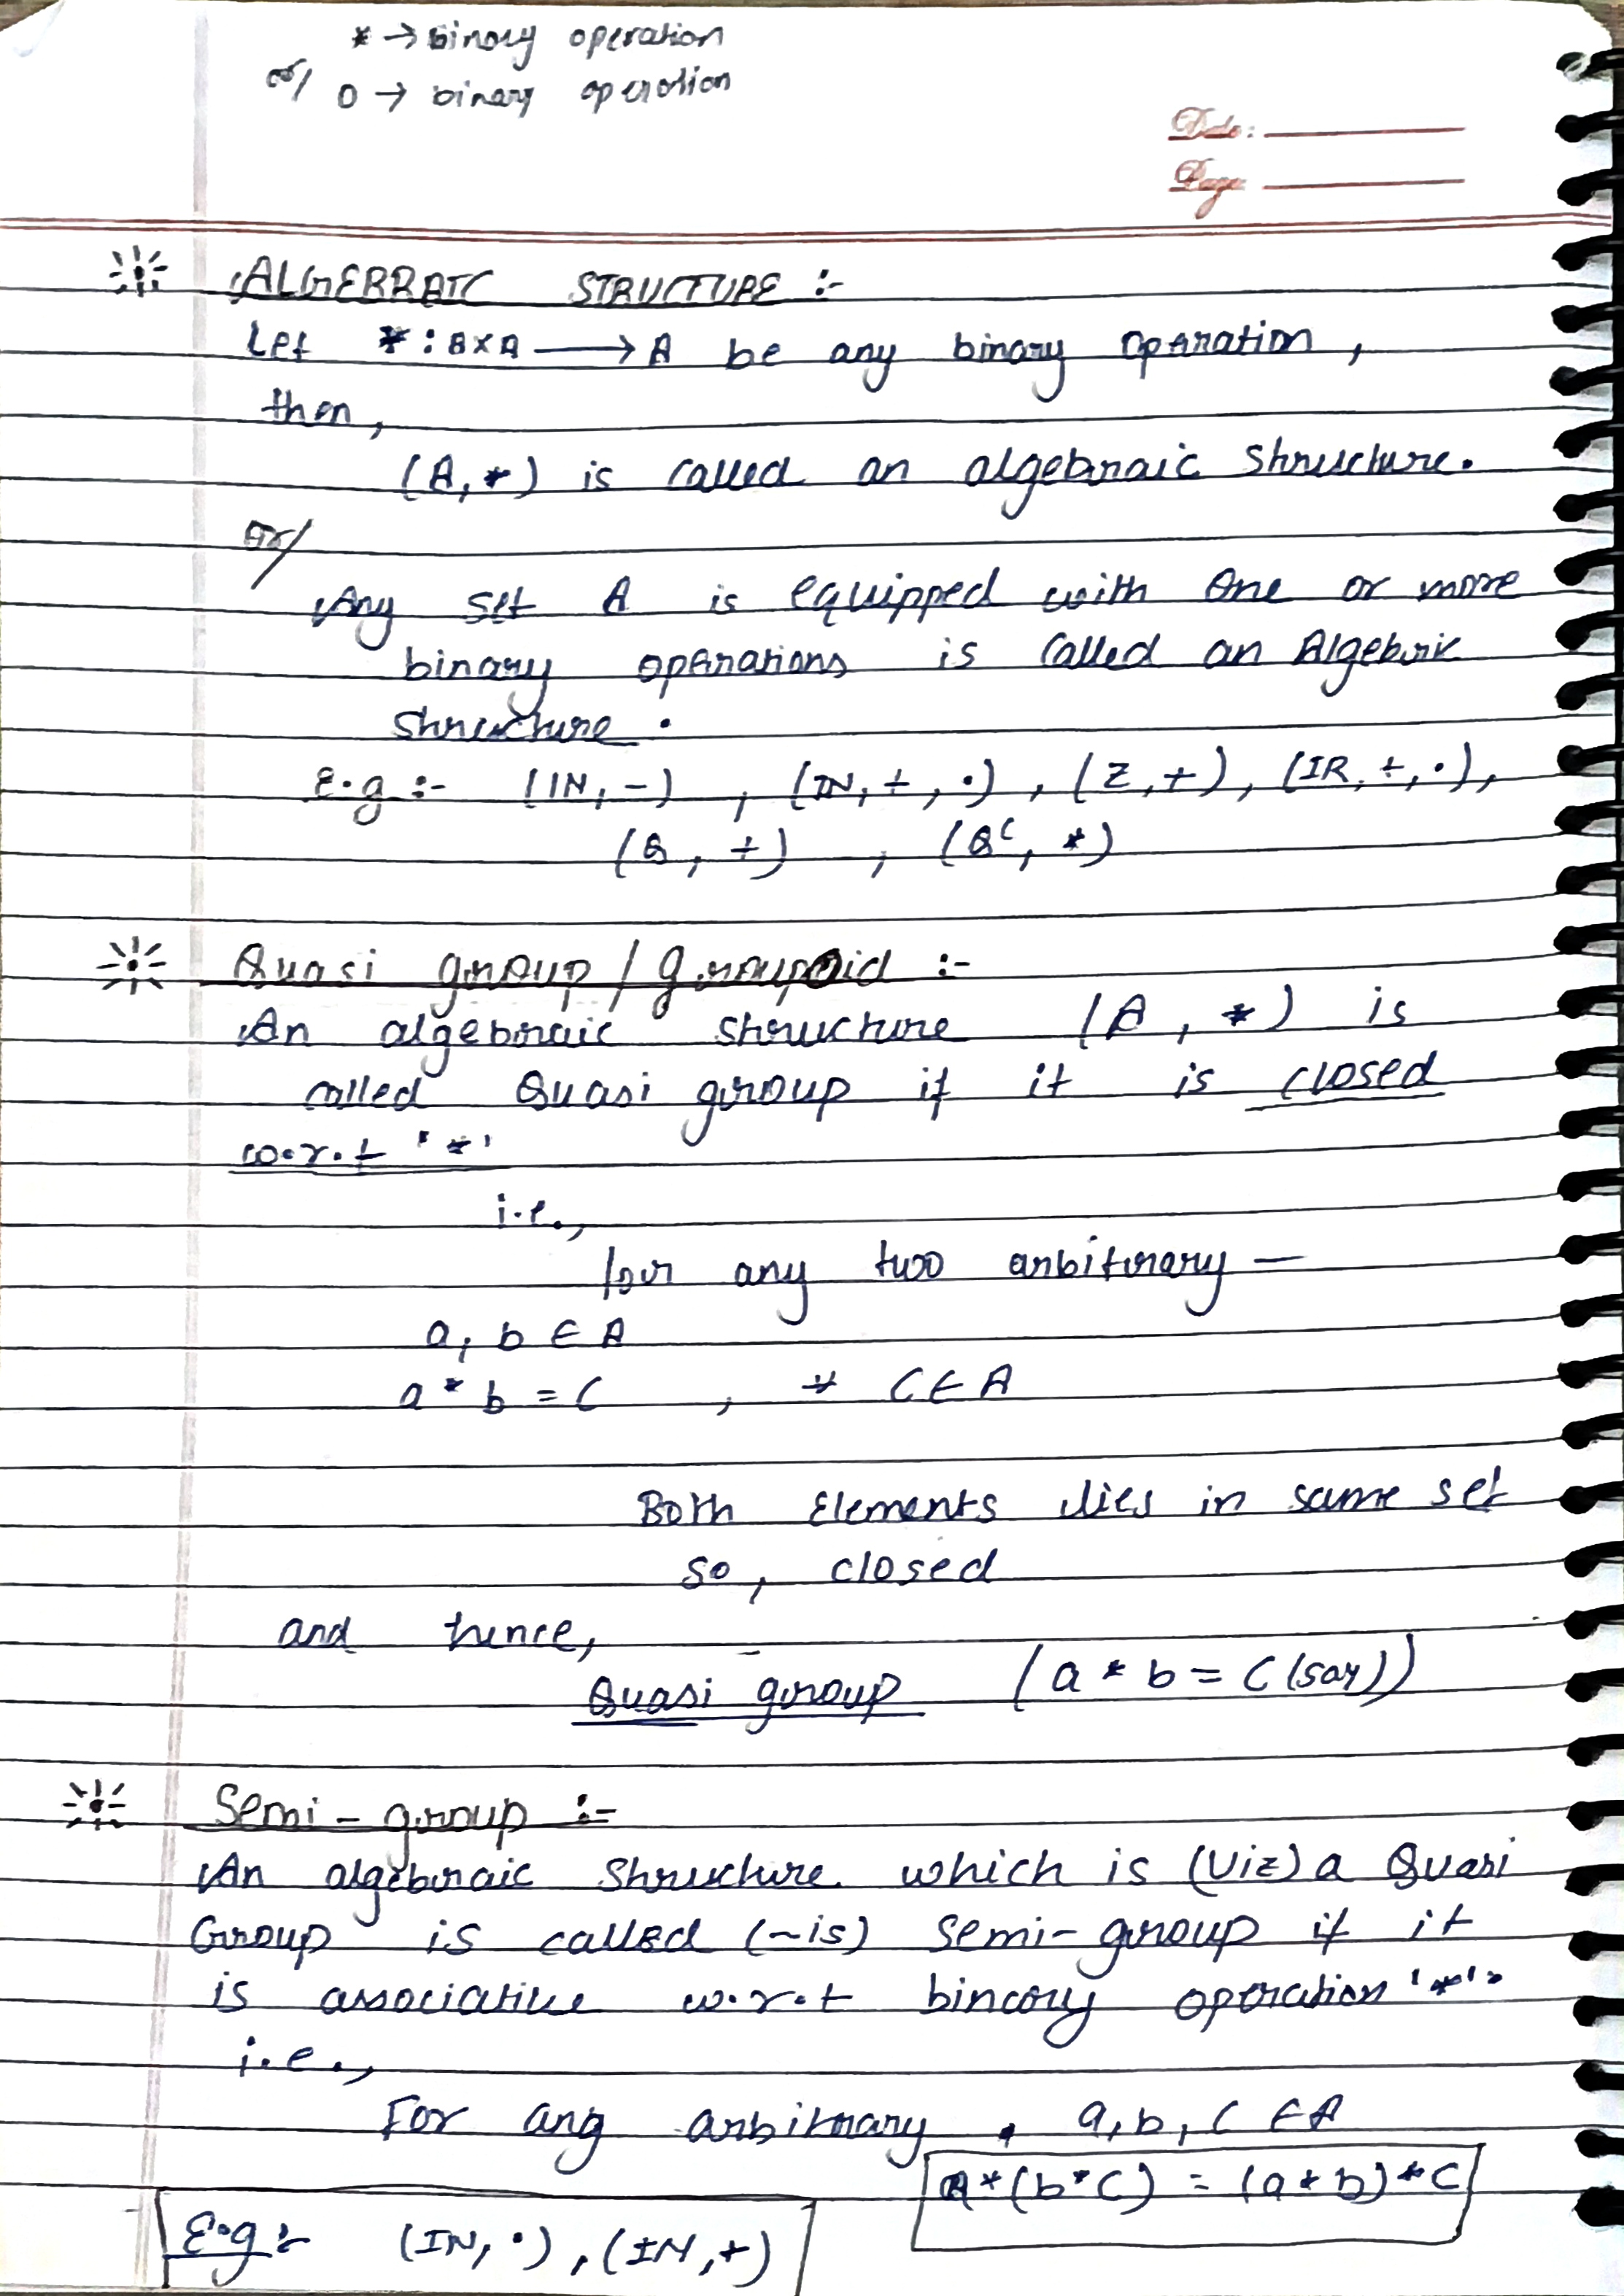 * → binary operation
or/ o → binary operation
Date:
Page
ALGEBRAIC STRUCTURE :-
Let * : A×A ⟶ A be any binary operation,
then,
(A, *) is called an algebraic structure.
or/
Any set A is equipped with one or more
binary operations is called an Algebric
structure.
E.g :- (IN, -) , (IN, +, •) , (Z, +), (IR, +, •),
(Q, +) , (Qᶜ, *)
Quasi group / groupoid :-
An algebraic structure (A, *) is
called Quasi group if it is closed
w.r.t '*'
i.e.,
for any two arbitrary —
a, b ∈ A
a * b = C , ∀ C ∈ A
Both Elements lies in same set
so, closed
and hence,
Quasi group (a * b = C (say))
Semi-group :=
An algebraic structure which is (Viz) a Quasi
Group is called (~is) Semi-group if it
is associative w.r.t binary operation '*'.
i.e.,
For any arbitrary , a, b, C ∈ A
a * (b * C) = (a * b) * C
E.g :- (IN, •), (IN, +)